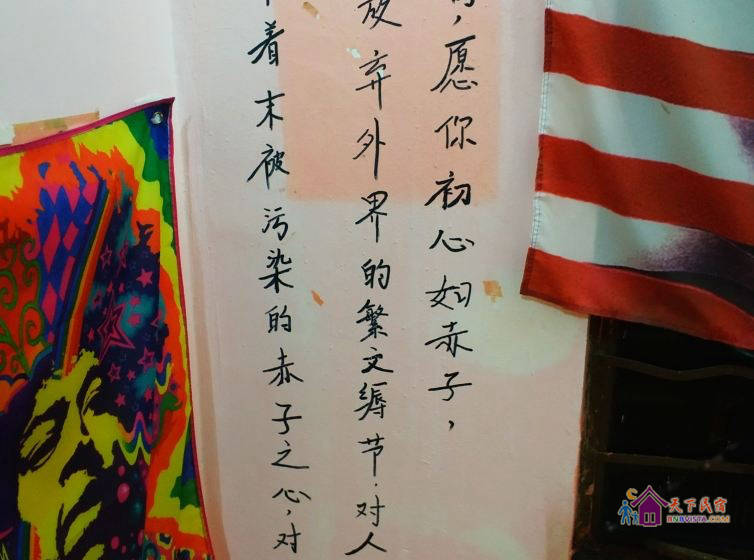 ，愿你初心如赤子，
放弃外界的繁文缛节.对人
着末被污染的赤子之心，对
天下民宿
BNBVISTA.COM